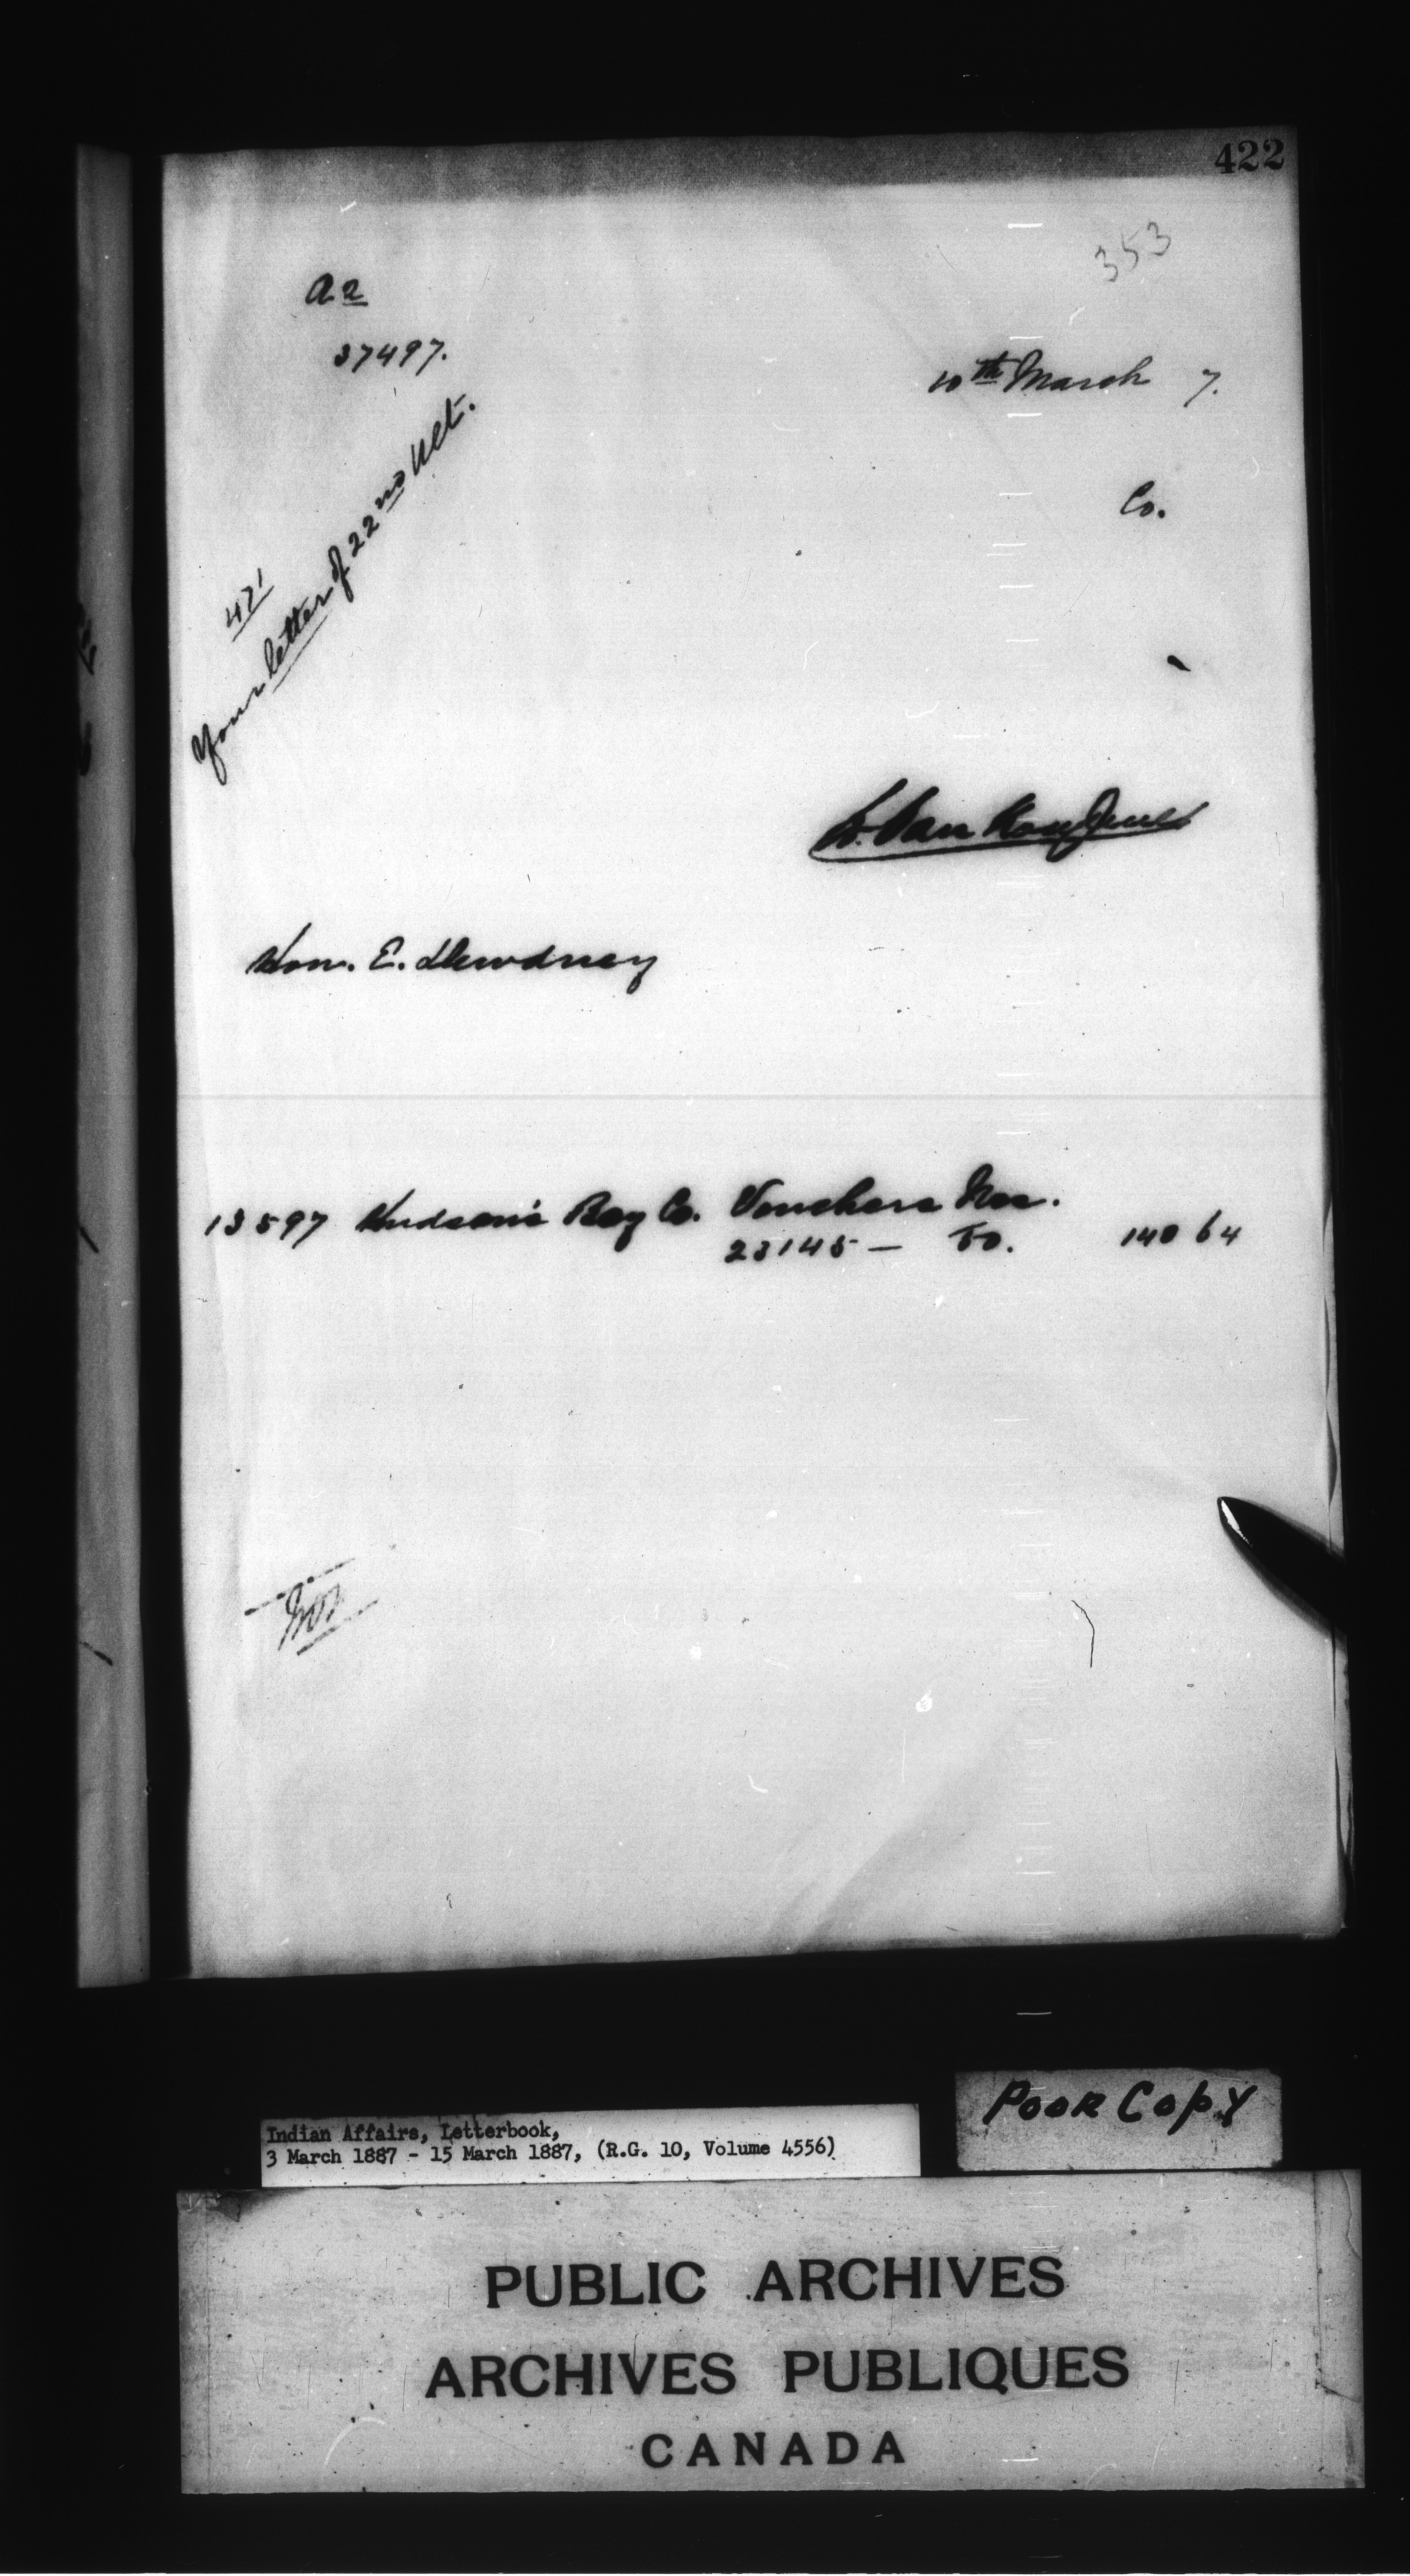 422
353
a 2
37497.
10th March 7.
Co.
471
Your letter of 22nd Ult.
L. Van Koughnet
Hon. E. Dewdney
13597 Hudson's Bay Co. Vouchers Nos.
23145 — 50. 140 64
Poor Copy
Indian Affairs, Letterbook,
3 March 1887 - 15 March 1887, (R.G. 10, Volume 4556)
PUBLIC ARCHIVES
ARCHIVES PUBLIQUES
CANADA